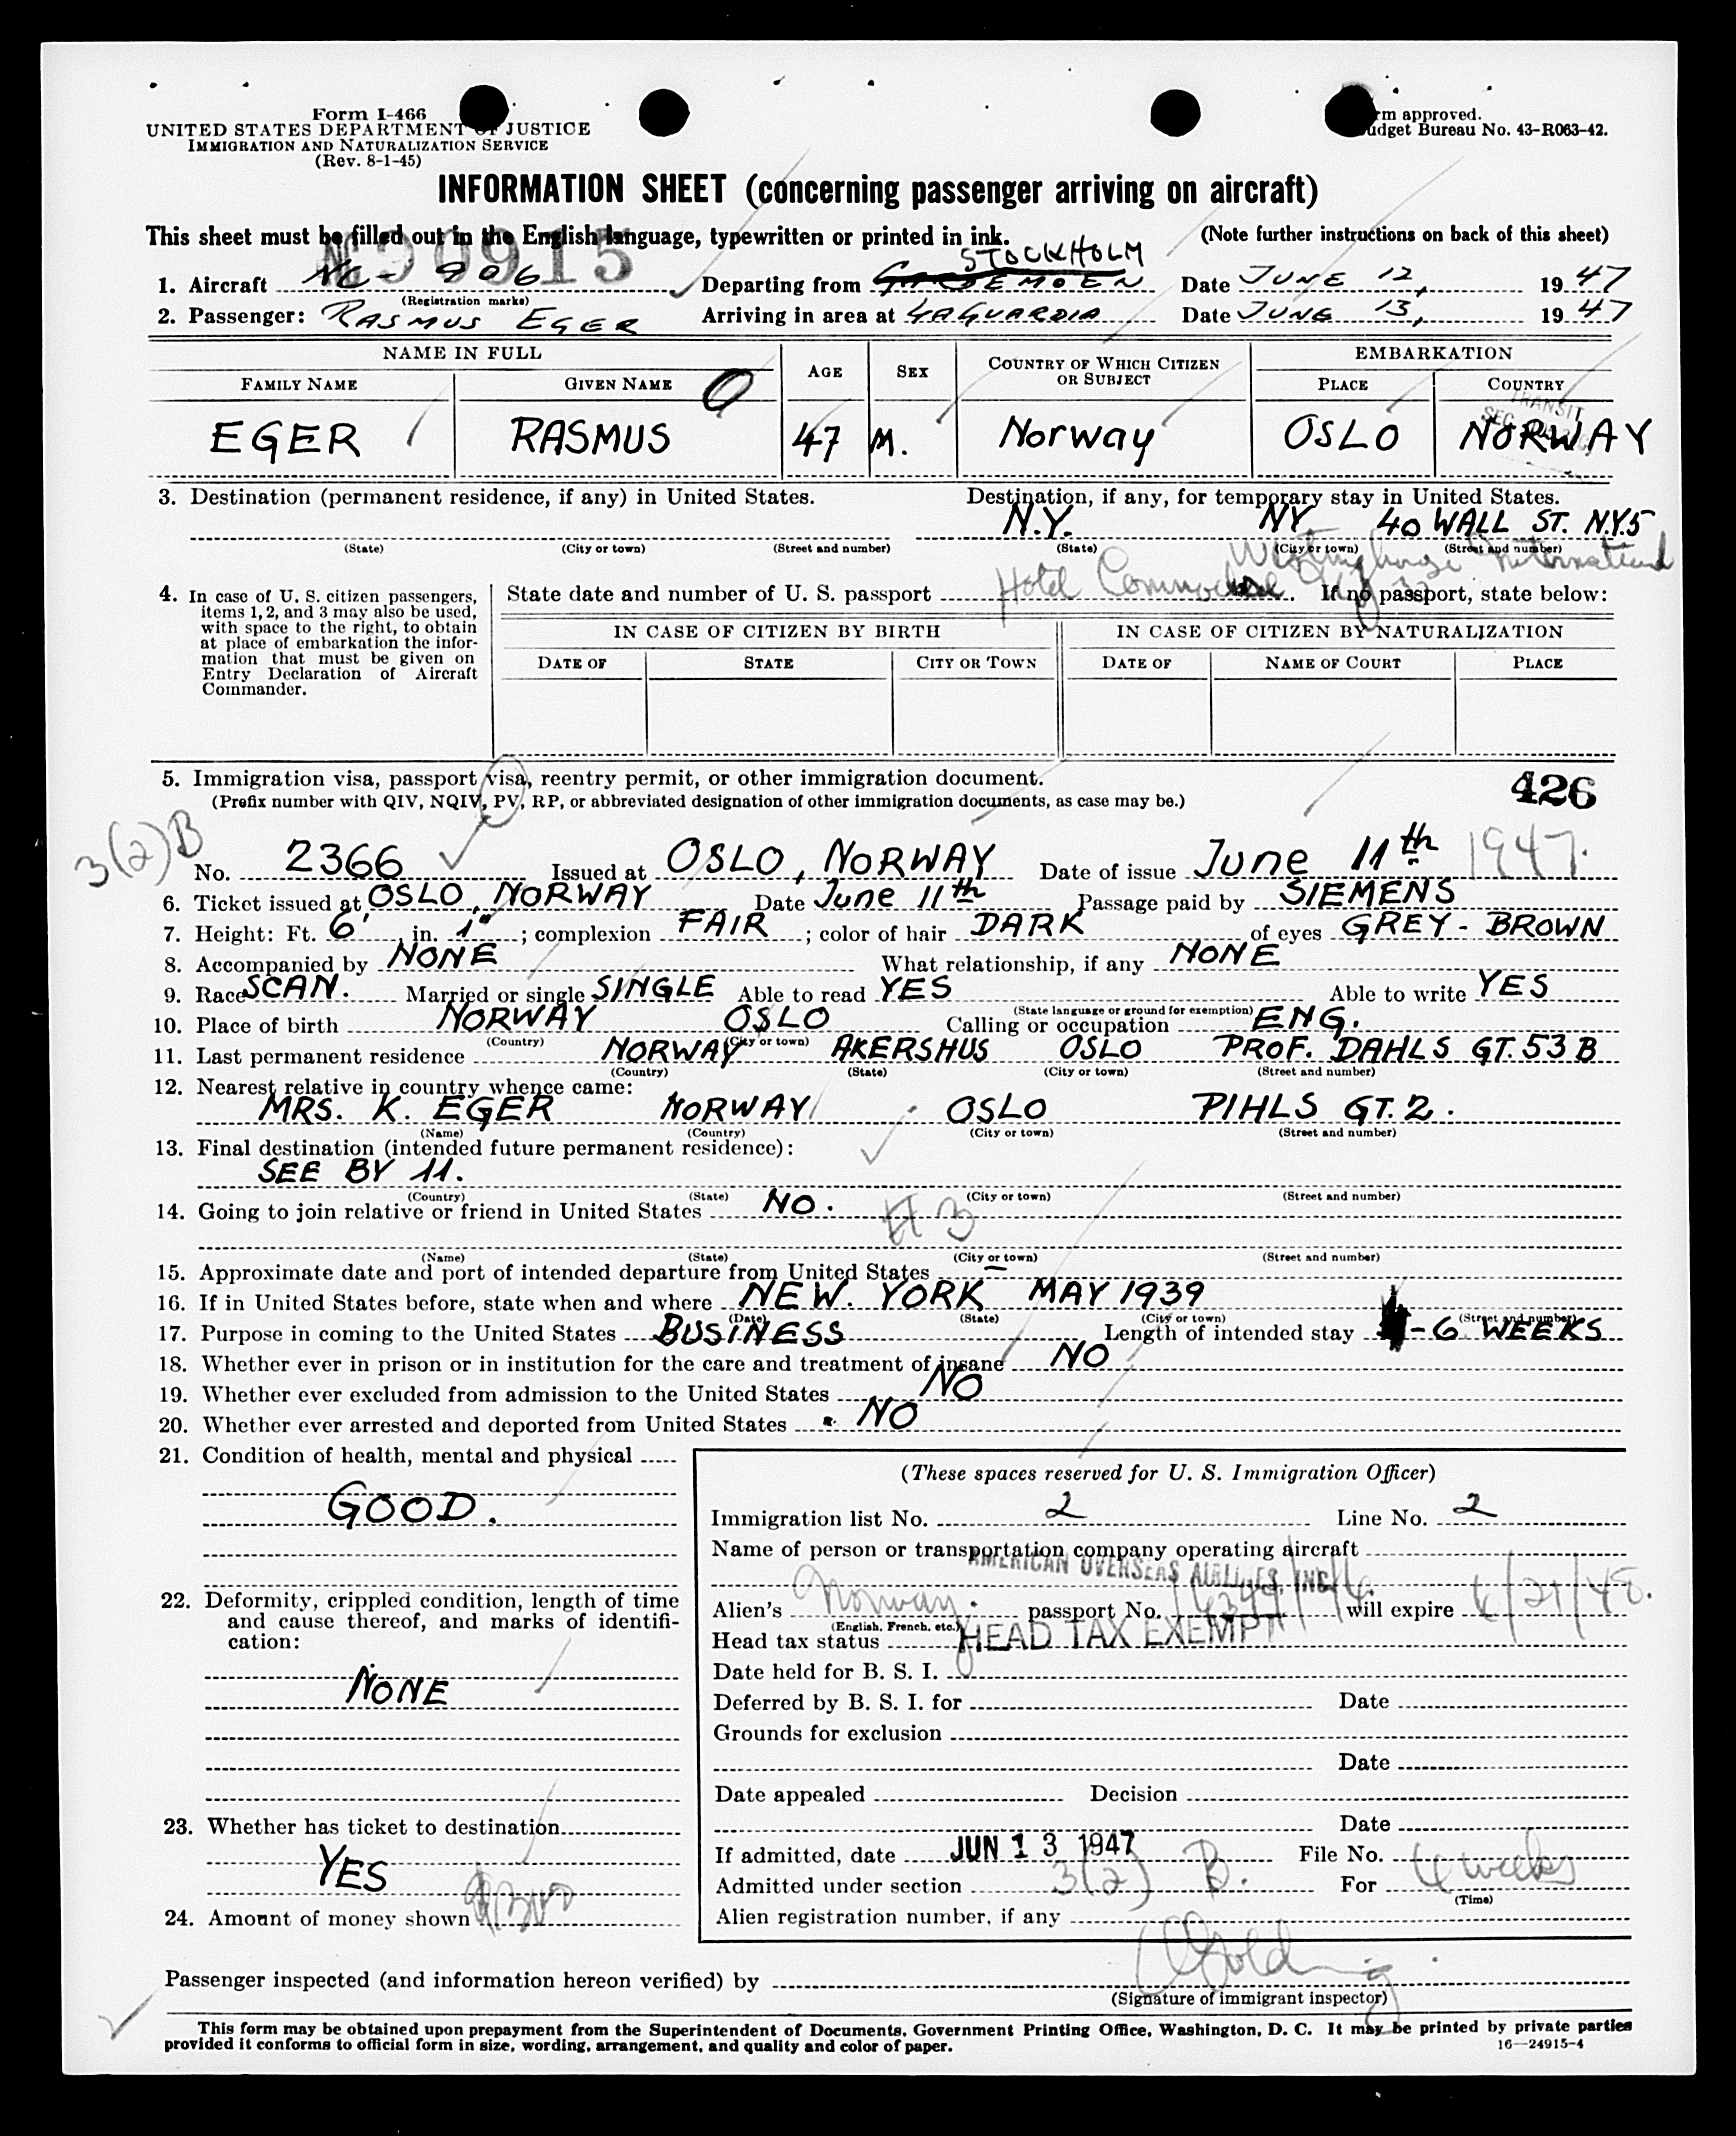 Form I-466
UNITED STATES DEPARTMENT OF JUSTICE
IMMIGRATION AND NATURALIZATION SERVICE
(Rev. 8-1-45)
rm approved.
udget Bureau No. 43-R063-42.
INFORMATION SHEET (concerning passenger arriving on aircraft)
This sheet must be filled out in the English language, typewritten or printed in ink.
(Note further instructions on back of this sheet)
90915
STOCKHOLM
1. Aircraft NC - 906 Departing from Date JUNE 12, 1947
(Registration marks)
2. Passenger: RASMUS EGER Arriving in area at LAGUARDIA Date JUNE 13, 1947
NAME IN FULL AGE SEX COUNTRY OF WHICH CITIZEN OR SUBJECT EMBARKATION
FAMILY NAME GIVEN NAME PLACE COUNTRY
TRANSIT
EGER RASMUS 47 M. Norway OSLO NORWAY
3. Destination (permanent residence, if any) in United States. Destination, if any, for temporary stay in United States.
N.Y. NY 40 WALL ST. N.Y.5
(State) (City or town) (Street and number) (State) (City or town) (Street and number)
Westinghouse International
Hotel Commodore
4. In case of U. S. citizen passengers, items 1, 2, and 3 may also be used, with space to the right, to obtain at place of embarkation the information that must be given on Entry Declaration of Aircraft Commander.
State date and number of U. S. passport If no passport, state below:
IN CASE OF CITIZEN BY BIRTH IN CASE OF CITIZEN BY NATURALIZATION
DATE OF STATE CITY OR TOWN DATE OF NAME OF COURT PLACE
5. Immigration visa, passport visa, reentry permit, or other immigration document.
(Prefix number with QIV, NQIV, PV, RP, or abbreviated designation of other immigration documents, as case may be.)
426
3(2)B
No. 2366 Issued at OSLO, NORWAY Date of issue June 11th 1947.
6. Ticket issued at OSLO, NORWAY Date June 11th Passage paid by SIEMENS
7. Height: Ft. 6' in. 1"; complexion FAIR; color of hair DARK of eyes GREY - BROWN
8. Accompanied by NONE What relationship, if any NONE
9. Race SCAN. Married or single SINGLE Able to read YES Able to write YES
(State language or ground for exemption)
10. Place of birth NORWAY OSLO Calling or occupation ENG.
(Country) (City or town)
11. Last permanent residence NORWAY AKERSHUS OSLO PROF. DAHLS GT. 53 B
(Country) (State) (City or town) (Street and number)
12. Nearest relative in country whence came:
MRS. K. EGER NORWAY OSLO PIHLS GT. 2.
(Name) (Country) (City or town) (Street and number)
13. Final destination (intended future permanent residence):
SEE BY 11.
(Country) (State) (City or town) (Street and number)
14. Going to join relative or friend in United States NO.
#3
(Name) (State) (City or town) (Street and number)
15. Approximate date and port of intended departure from United States –
16. If in United States before, state when and where NEW. YORK MAY 1939
(Date) (State) (City or town) (Street and number)
17. Purpose in coming to the United States BUSINESS Length of intended stay -6 WEEKS
18. Whether ever in prison or in institution for the care and treatment of insane NO
19. Whether ever excluded from admission to the United States NO
20. Whether ever arrested and deported from United States NO
21. Condition of health, mental and physical
GOOD.
22. Deformity, crippled condition, length of time and cause thereof, and marks of identification:
NONE
23. Whether has ticket to destination
YES
24. Amount of money shown
(These spaces reserved for U. S. Immigration Officer)
Immigration list No. 2 Line No. 2
Name of person or transportation company operating aircraft
AMERICAN OVERSEAS AIRLINES, INC.
Alien's Norway. passport No. will expire 6/21/48.
(English, French, etc.)
Head tax status HEAD TAX EXEMPT
Date held for B. S. I.
Deferred by B. S. I. for Date
Grounds for exclusion
Date
Date appealed Decision
Date
If admitted, date JUN 13 1947 File No.
Admitted under section 3(2) B. For 6 weeks
(Time)
Alien registration number, if any
Passenger inspected (and information hereon verified) by
(Signature of immigrant inspector)
This form may be obtained upon prepayment from the Superintendent of Documents, Government Printing Office, Washington, D. C. It may be printed by private parties
provided it conforms to official form in size, wording, arrangement, and quality and color of paper.
16—24915-4